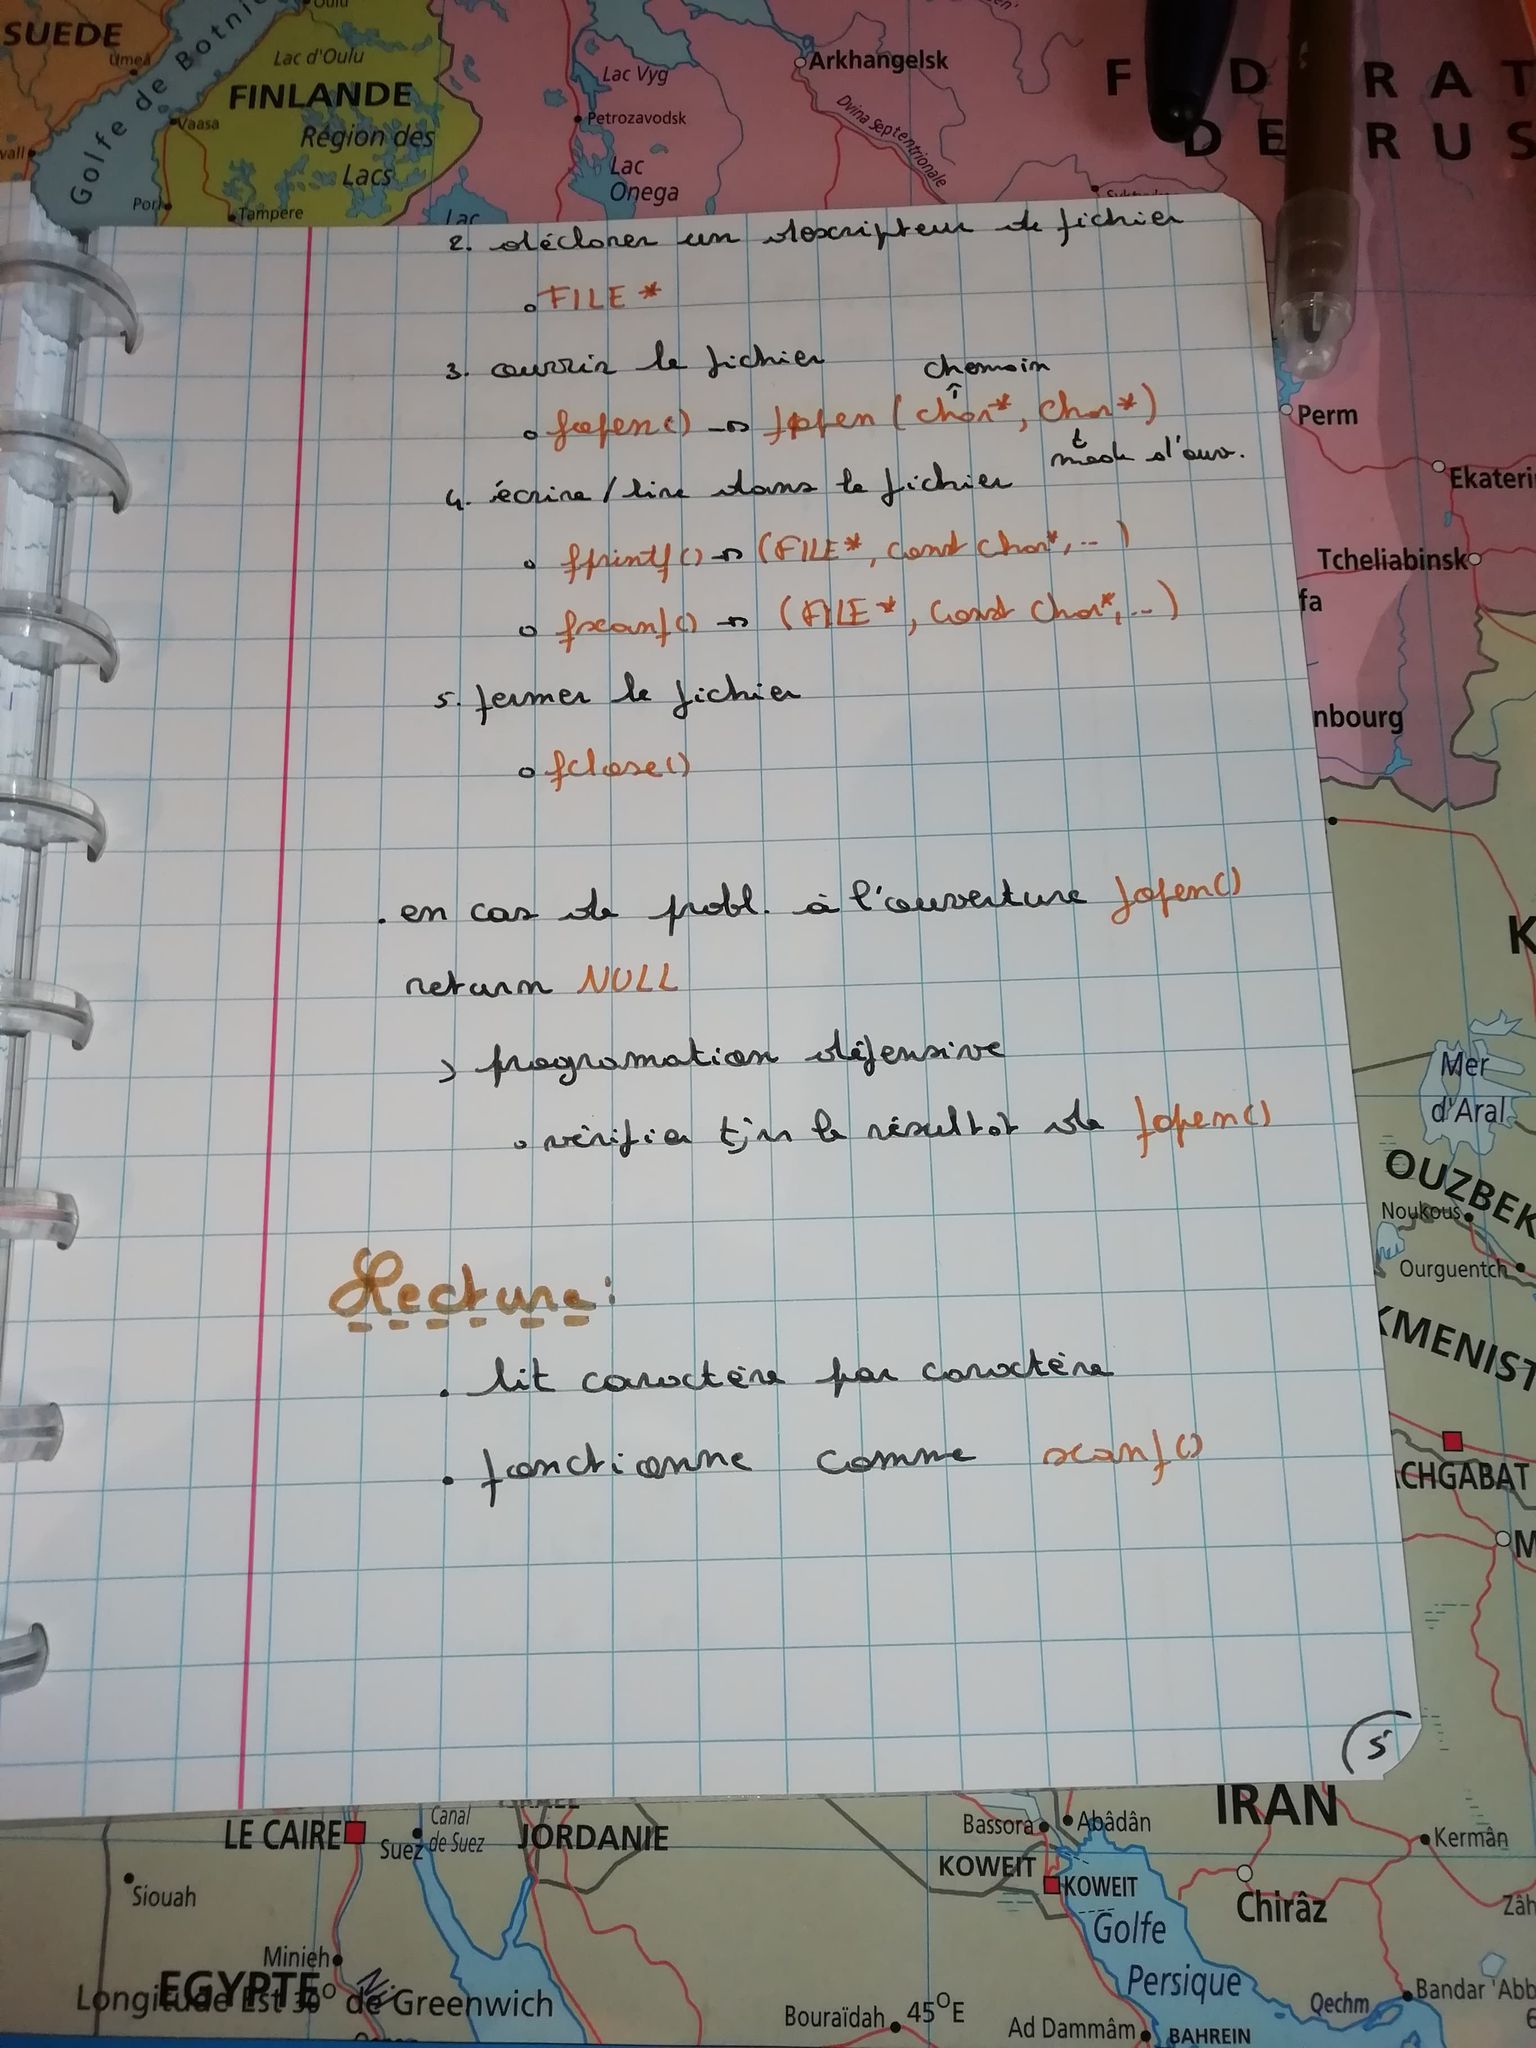 SUEDE
Golfe de Botnie
Oulu
Umeå
Lac d'Oulu
FINLANDE
Vaasa
Région des
Lacs
Pori
Tampere
Lac
Lac Vyg
Petrozavodsk
Lac
Onega
Arkhangelsk
Dvina Septentrionale
F D RAT
DE RUS
2. déclarer un descripteur de fichier
◦ FILE *
3. ouvrir le fichier
chemain
◦ fopen() → fopen (char*, char*)
mode d'ouv.
4. écrire / lire dans le fichier
◦ fprintf() → (FILE*, const char*, ...)
◦ fscanf() → (FILE*, const char*, ...)
5. fermer le fichier
◦ fclose()
. en cas de probl. à l'ouverture fopen()
return NULL
> programation défensive
◦ vérifier tjrs le résultat de fopen()
Lecture :
. lit caractère par caractère
. fonctionne comme scanf()
5
Perm
Ekateri
Tcheliabinsk
fa
nbourg
K
Mer
d'Aral
OUZBEK
Noukous
Ourguentch
KMENIST
ACHGABAT
M
LE CAIRE
Suez
Canal
de Suez
JORDANIE
Siouah
Minieh
EGYPTE
Nil
Longitude Est 30° de Greenwich
Bassora
Abâdân
IRAN
Kermân
KOWEIT
KOWEIT
Chirâz
Golfe
Persique
Zâh
Bouraïdah
45°E
Ad Dammâm
BAHREIN
Qechm
Bandar 'Abb